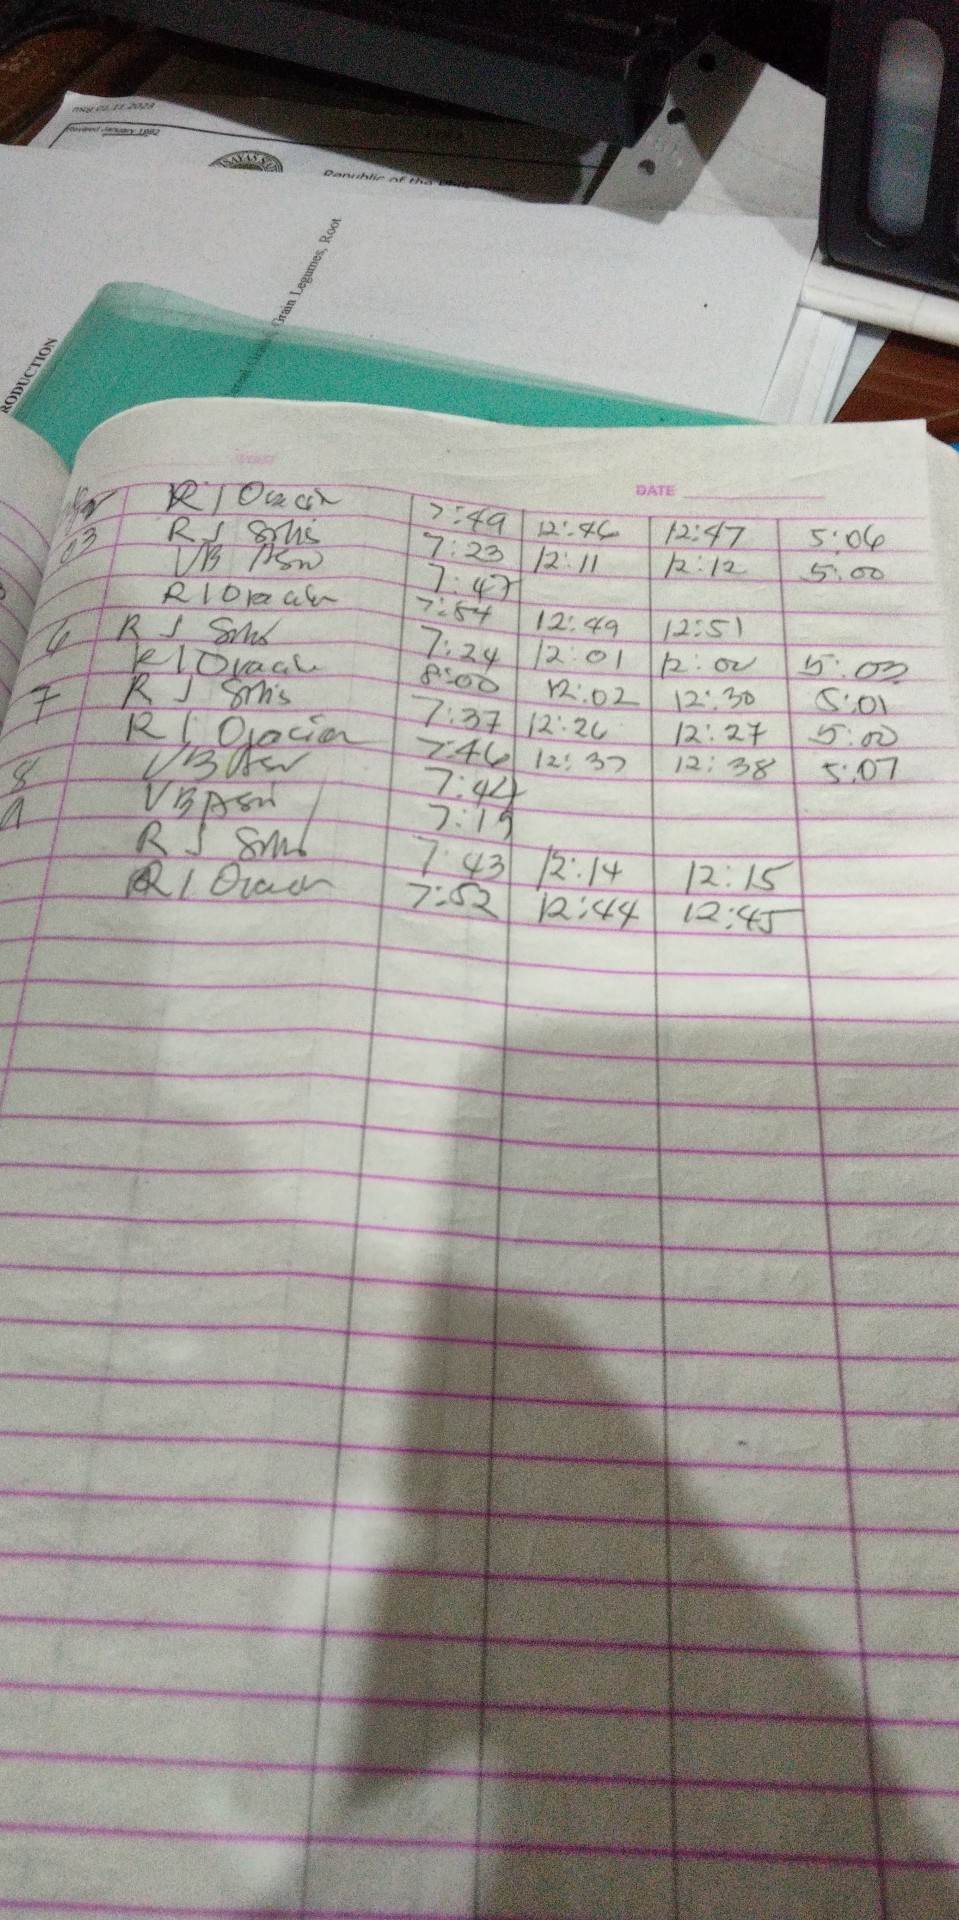 Revised January 1992
Republic of the
Grain Legumes, Root
RODUCTION
DATE
R I Oracion 7:49 12:46 12:47 5:06
03 R J Solis 7:23 12:11 12:12 5:00
VB 7:47
R I Oracion 7:54 12:49 12:51
6 R J Solis 7:24 12:01 12:02 5:03
R I Oracion 8:00 12:02 12:30 5:01
7 R J Solis 7:37 12:26 12:27 5:00
R I Oracion 7:46 12:37 12:38 5:07
8 VB 7:44
9 VB 7:19
R J Solis 7:43 12:14 12:15
R I Oracion 7:52 12:44 12:45